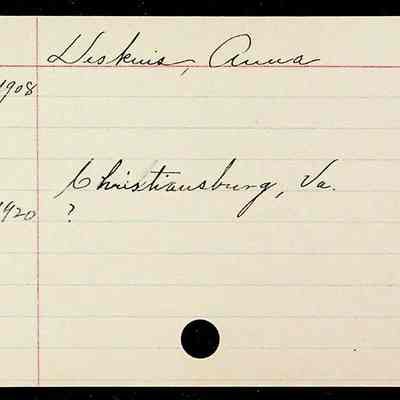 Deskins, Anna
1908
Christiansburg, Va.
1920 ?